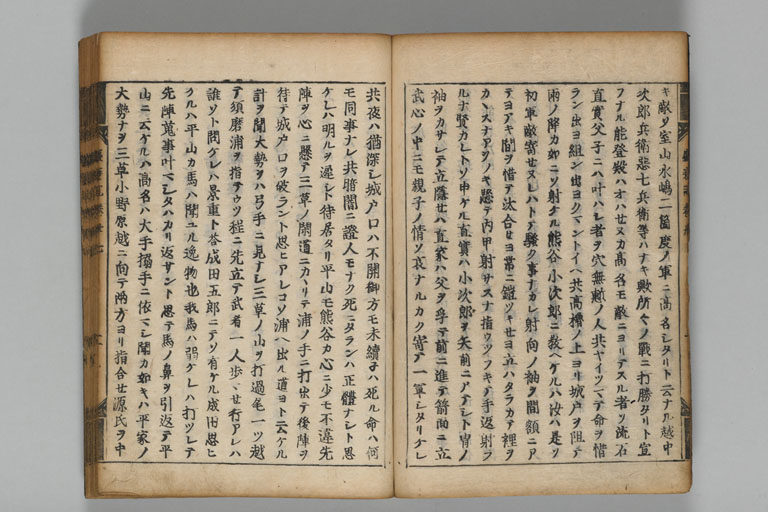 キ敵ヲ室山水嶋二箇度ノ軍ニ高名シタリト云ナル越中
次郎兵衛悪七兵衛等ハナキ歟所々ノ戦ニ打勝タリト宣
フナル能登殿ハオハセヌカ高名モ敵ニヨリテスル者ソ流石
直實父子ニハ叶ハシ者ヲ穴無慙ノ人共ヤイツマテ命ヲ惜
ラン出ヨ組ン出ヨクマントイヘ共高櫓ノ上ヨリ城戸ヲ阻テ
雨ノ降カ如ニソ射ケル熊谷小次郎ニ教ヘケルハ汝ハ是ソ
初軍敵寄セヌレハトテ騒ク事ナカレ射向ノ袖ヲ間額ニア
テヨアキ間ヲ惜テ汰合セヨ常ニ鎧ツキセヨ立ハタラカテ裡ヲ
カヽスナアフノキ懸テ内甲射サスナ指ウツフキテ手返射ラ
ルナ賢カレトソ申ケル直實ハ小次郎ヲ矢前ニアテシト冑ノ
袖ヲカサシテ立隠セハ直家ハ父ヲ孚テ前ニ進テ箭面ニ立
武心ノ中ニモ親子ノ情ソ哀ナルカク寄テ一軍シタリケレ
共夜ハ猶深シ城戸口ハ不開御方モ未續子ハ死ル命ハ何
モ同事ナレ共暗闇ニ證人モナク死ニタランハ正體ナシト思
ケレハ明ルヲ遅シト待居タリ平山モ熊谷カ心ニ少モ不違先
陣ヲ心ニ懸テ三草ノ閑道ニカヽリテ浦ノ手ニ打出テ後陣ヲ
待テ城戸口ヲ破ラント思ヒアレコソ浦ヘ出ル道ヨト云ケル
計ヲ聞大勢ヲハ弓手ニ見ナシ三草ノ山ヲ打過毛一ツ越
テ須磨浦ヲ指テウツ程ニ先立テ武者一人歩ヽセ行アレハ
誰ソト問ケレハ景重ト答成田五郎ニテソ有ケル成田思ヒ
クルハ平山カ馬ハ聞ユル逸物也我馬ハ弱ケレハ打ツレテ
先陣蒐事叶マシタハカリ返サント思テ馬ノ鼻ヲ引返テ平
山ニ云ケルハ高名ハ大手搦手ニ依マシ聞カ如キハ平家ノ
大勢ナヲ三草小野原越ニ向テ兩方ヨリ指合セ源氏ヲ中